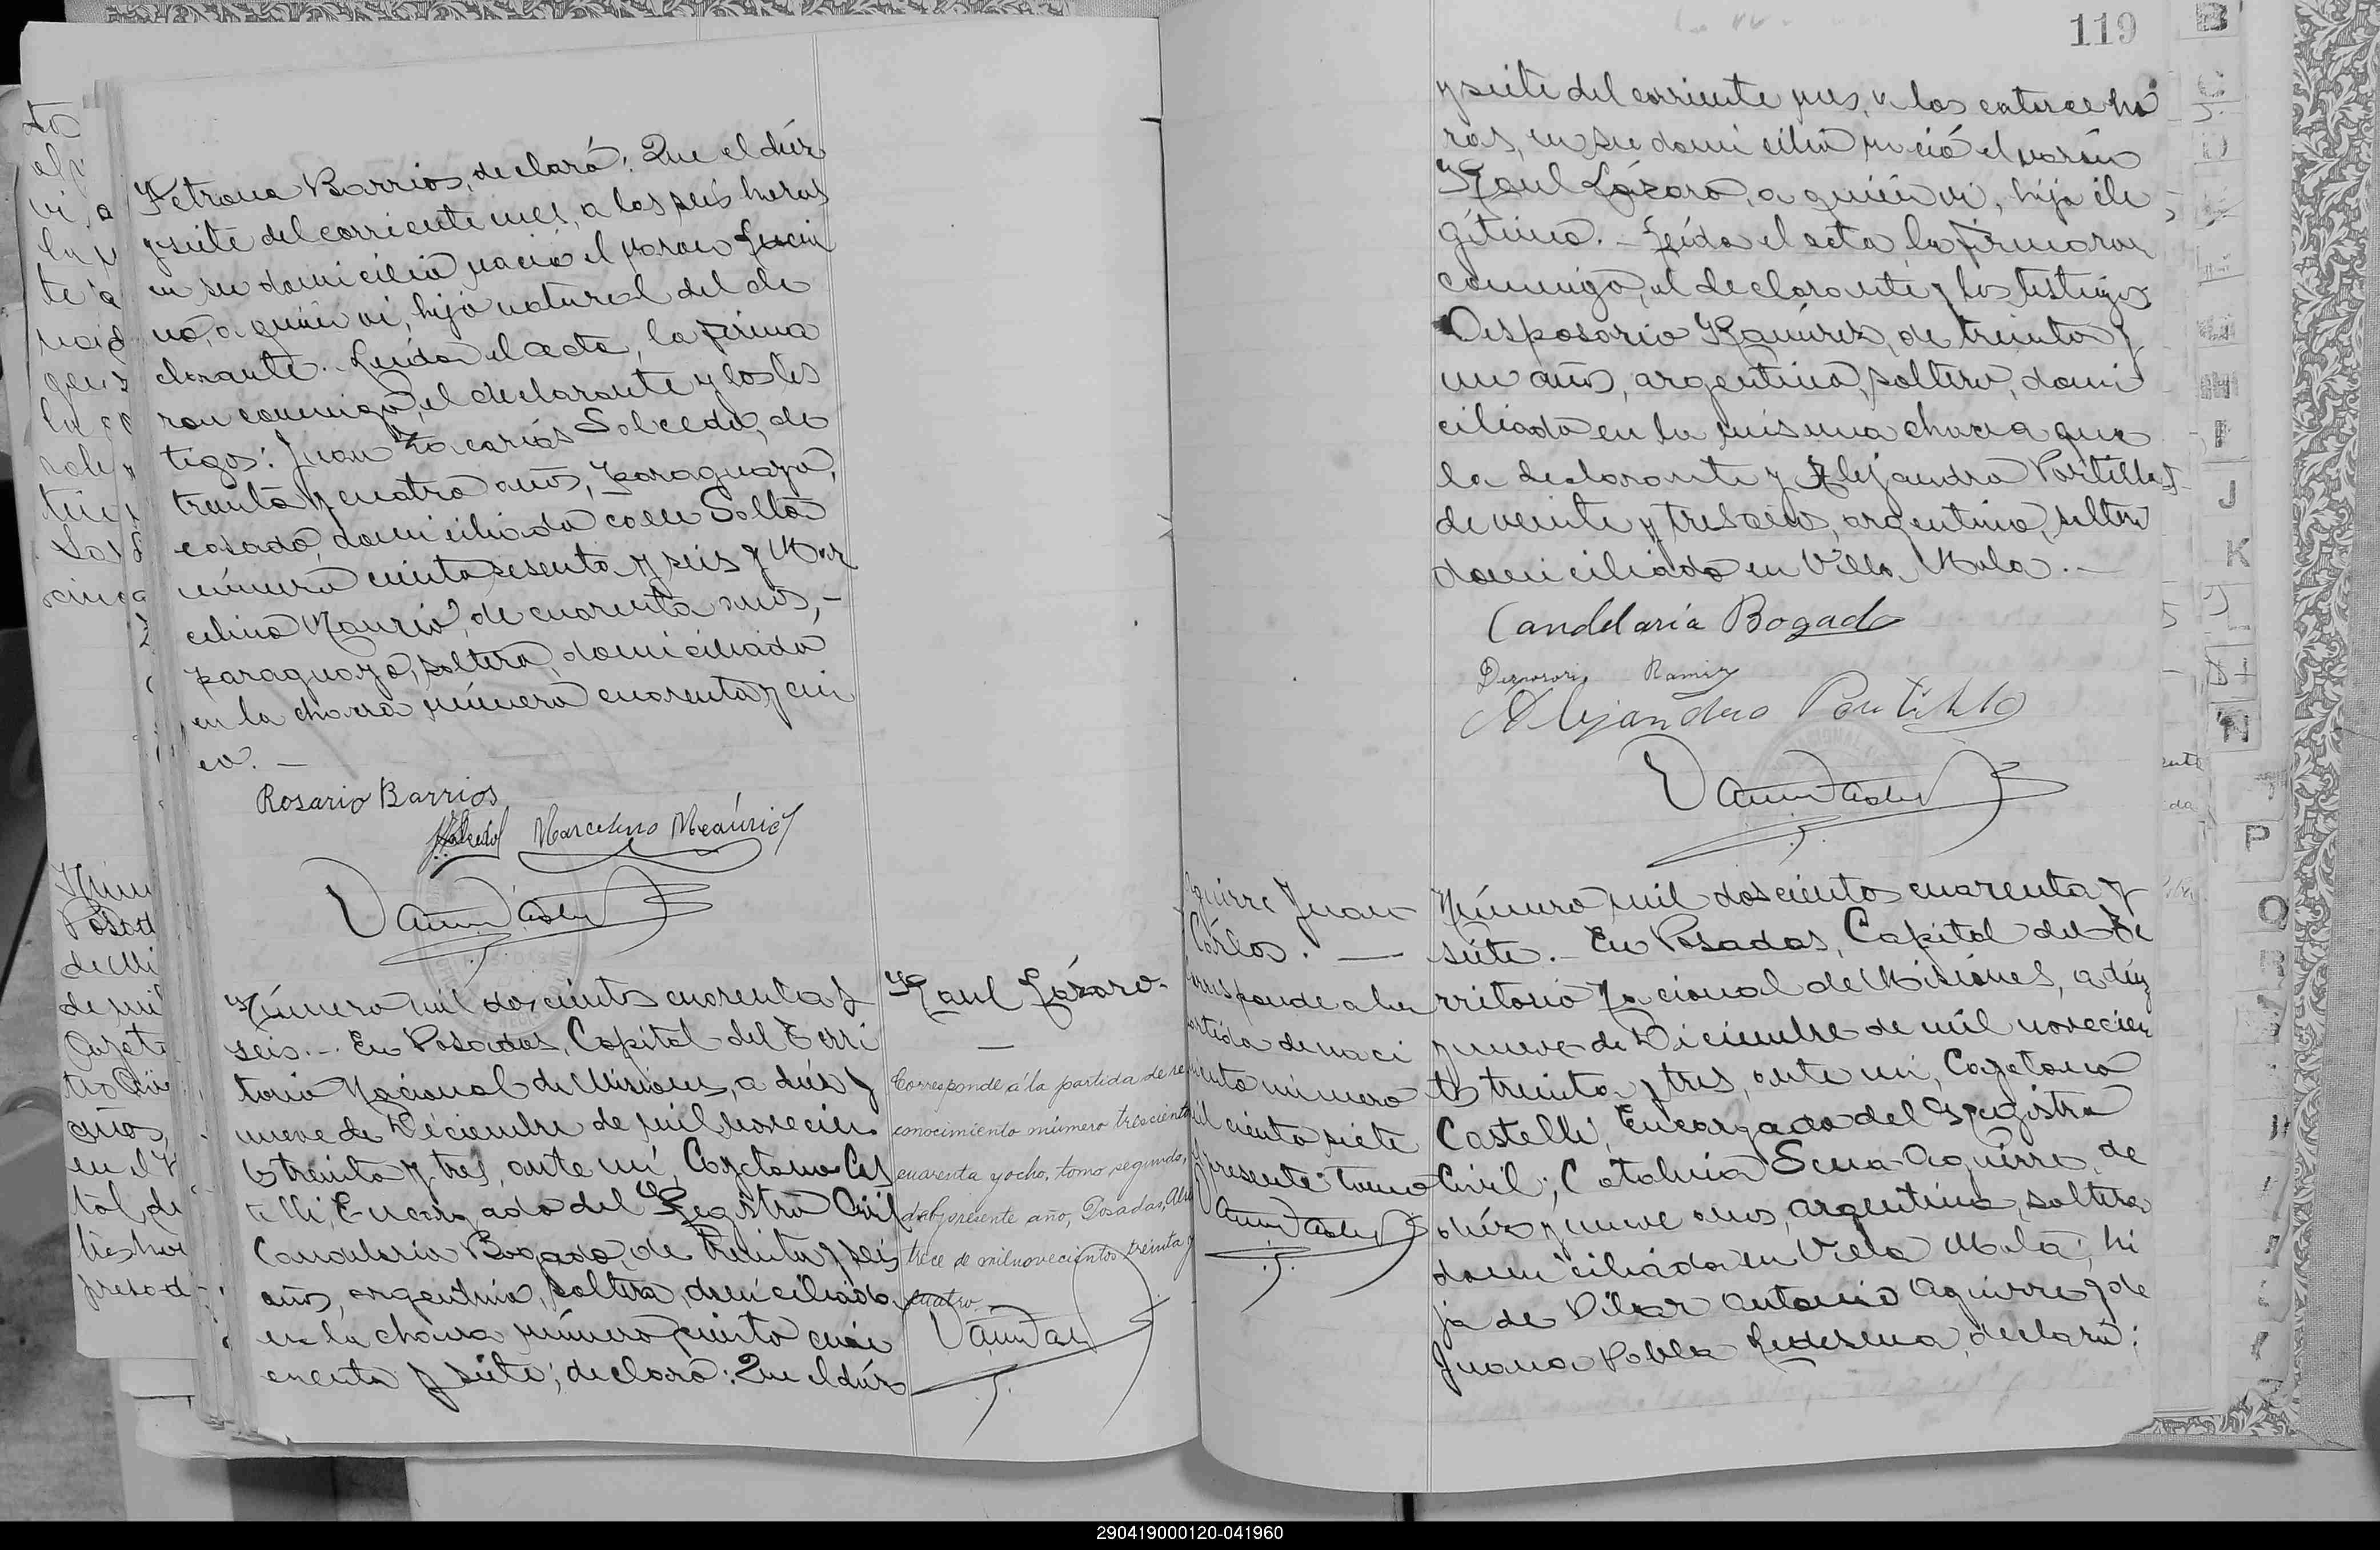 Petrona Barrios, declaró: Que el diéz
y siete del corriente mes, a las seis horas
en su domicilio nació el varon Lucia
no, a quién vi, hijo natural del de
clarante. Leída el acta, la firma
ron conmigo, el declarante y los tes
tigos: Juan Zacarías Salcedo, de
treinta y cuatro años, paraguayo,
casado, domiciliado calle Salta
número ciento sesenta y seis y Mar
celino Meaurio, de cuarenta años,-
paraguayo, soltero, domiciliado
en la chacra número cuarenta y cin
co. -
Rosario Barrios
Marcelino Meáurio
Número mil doscientos cuarenta y
seis.- En Posadas, Capital del Terri
torio Nacional de Misiones, a diéz y
nueve de Diciembre de mil novecien
tos treinta y tres, ante mí, Cayetano Cas
telli, Encargado del Registro Civil
Candelaria Bogado, de treinta y seis
años, argentina, soltera, domiciliada
en la chacra número ciento cua
renta y siete; declaró: Que el diéz
Raul Lázaro.
—
Corresponde á la partida de re
conocimiento número trescientos
cuarenta y ocho, tomo segundo,
del presente año, Posadas, Abril
trece de mil novecientos treinta y
cuatro.
119
y siete del corriente mes, a las catorce ho
ras, en su domicilio nació el varón
Raul Lázaro, a quién vi, hijo ile
gítimo. - Leída el acta la firmaron
conmigo, el declarante y los testigos
Desposorio Ramírez, de treinta y
un años, argentino, soltero, domi
ciliado en la misma chacra que
la declarante y Alejandro Portillo
de veinte y tres años, argentino, soltero
domiciliado en Villa Mola. -
Candelaria Bogado
Desposorio Ramirez
Alejandro Portillo
Aguirre Juan
Carlos. —
Corresponde a la
partida de naci
miento número
mil ciento siete
presente tomo
Número mil doscientos cuarenta y
siete.- En Posadas, Capital del Te
rritorio Nacional de Misiones, a diéz
y nueve de Diciembre de mil novecien
tos treinta y tres, ante mi, Cayetano
Castelli, Encargado del Registro
Civil; Catalina Sena Aguirre, de
diéz y nueve años, argentina, soltera
domiciliada en Villa Mola; hi
ja de Antonio Aguirre y de
Juana Ledesma, declaró:
290419000120-041960
B
C
D
H
I
J
K
N
P
Q